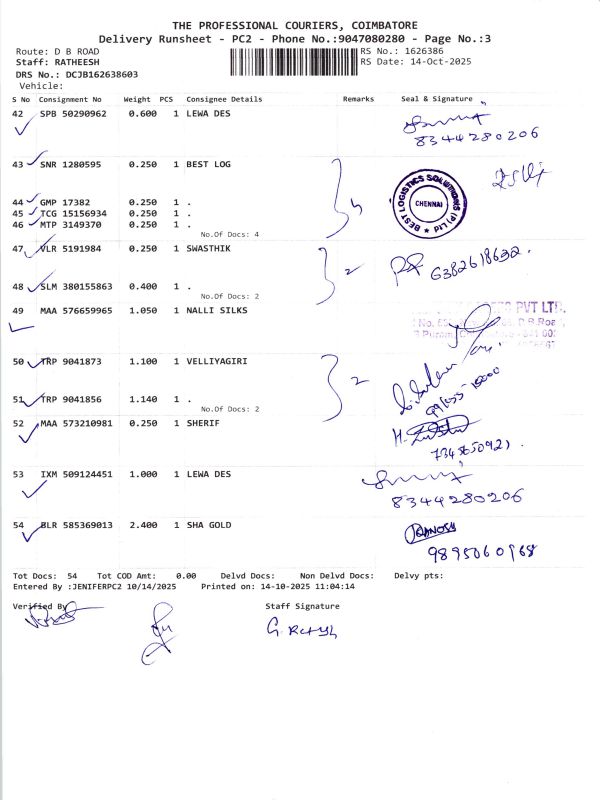 THE PROFESSIONAL COURIERS, COIMBATORE
Delivery Runsheet - PC2 - Phone No.:9047080280 - Page No.:3
Route: D B ROAD
RS No.: 1626386
Staff: RATHEESH
RS Date: 14-Oct-2025
DRS No.: DCJB162638603
Vehicle:
S No Consignment No Weight PCS Consignee Details Remarks Seal & Signature
42 SPB 50290962 0.600 1 LEWA DES
8344280206
43 SNR 1280595 0.250 1 BEST LOG
44 GMP 17382 0.250 1 .
45 TCG 15156934 0.250 1 .
46 MTP 3149370 0.250 1 .
No.Of Docs: 4
4
BEST LOGISTICS SOLUTIONS (P) LTD
CHENNAI
47 VLR 5191984 0.250 1 SWASTHIK
48 SLM 380155863 0.400 1 .
No.Of Docs: 2
2
6382618632.
49 MAA 576659965 1.050 1 NALLI SILKS
PVT LTD.
50 TRP 9041873 1.100 1 VELLIYAGIRI
51 TRP 9041856 1.140 1 .
No.Of Docs: 2
2
52 MAA 573210981 0.250 1 SHERIF
53 IXM 509124451 1.000 1 LEWA DES
8344280206
54 BLR 585369013 2.400 1 SHA GOLD
9895060968
Tot Docs: 54 Tot COD Amt: 0.00 Delvd Docs: Non Delvd Docs: Delvy pts:
Entered By :JENIFERPC2 10/14/2025 Printed on: 14-10-2025 11:04:14
Verified By Staff Signature